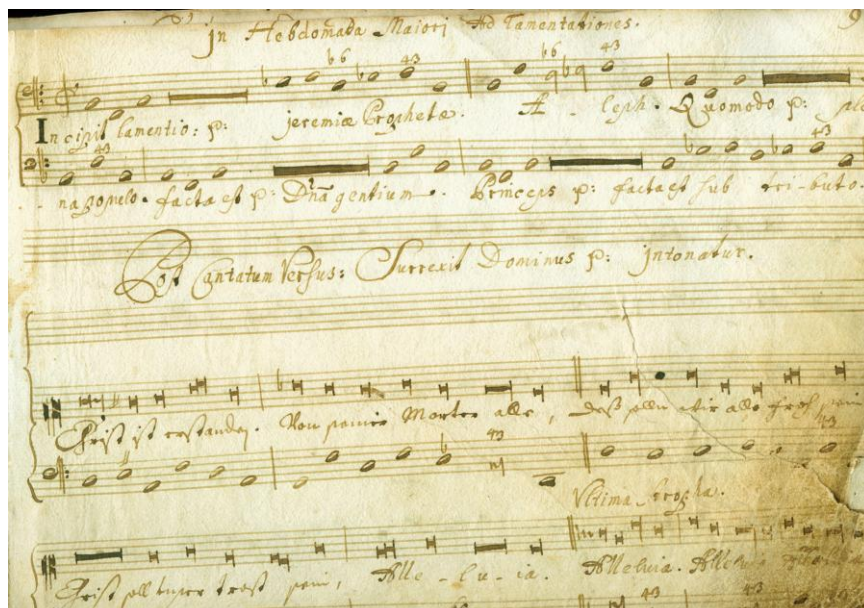 In Hebdomada Maiori Ad Lamentationes. 9
Incipit lamentio: p: jeremiæ Prophetæ. A - leph. Quomodo p:
facta est p: Dña gentium. Princeps p: facta est sub tri-buto.
Post Cantatum Versus: Surrexit Dominus p: jntonatur.
Christ ist erstanden. Von seiner Marter alle, deß sollen wir alle froh sein
Vltima stropha.
Christ soll unser trost sein, Alle - lu - ia. Alleluia. Alleluia